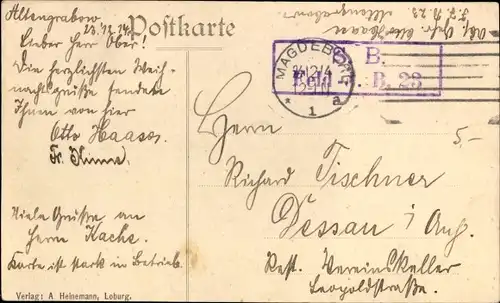 Altengrabow
23.12.14.
Postkarte
Lieber Herr Ober!
Die herzlichsten Weih-
nachtsgrüße sendet
Ihnen von hier
Otto Haase
Fr.
Viele Grüße an
Herrn Kache.
Karte ist stark in Betrieb
Verlag: A Heinemann, Loburg.
Otto Haase
Altengrabow
MAGDEBURG
* 1 a
Feld
B.
B. 23
5-
Herrn
Richard Tischner
Dessau i/ Anh.
Rest. Vereinskeller
Leopoldstraße.